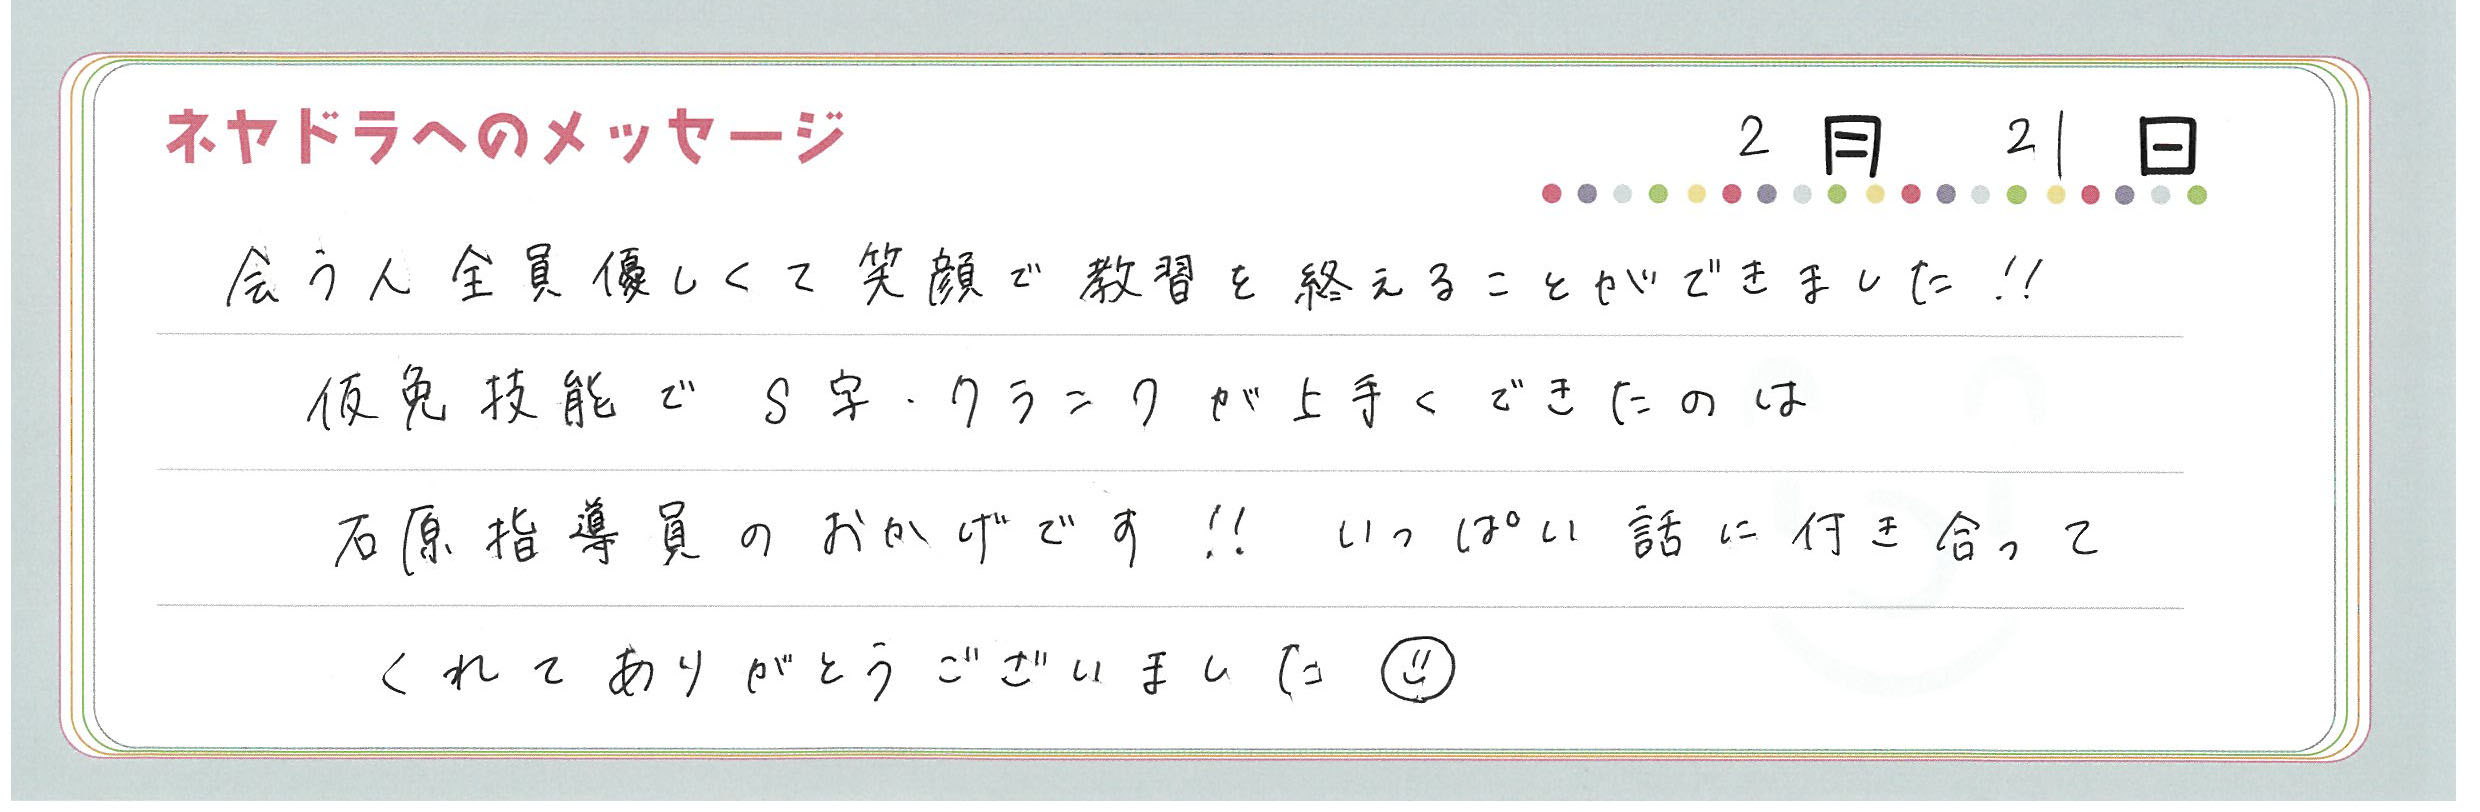 ネヤドラへのメッセージ
2月 21日
会う人全員優しくて笑顔で教習を終えることができました!!
仮免技能でS字・クランクが上手くできたのは
石原指導員のおかげです!! いっぱい話に付き合って
くれてありがとうございました